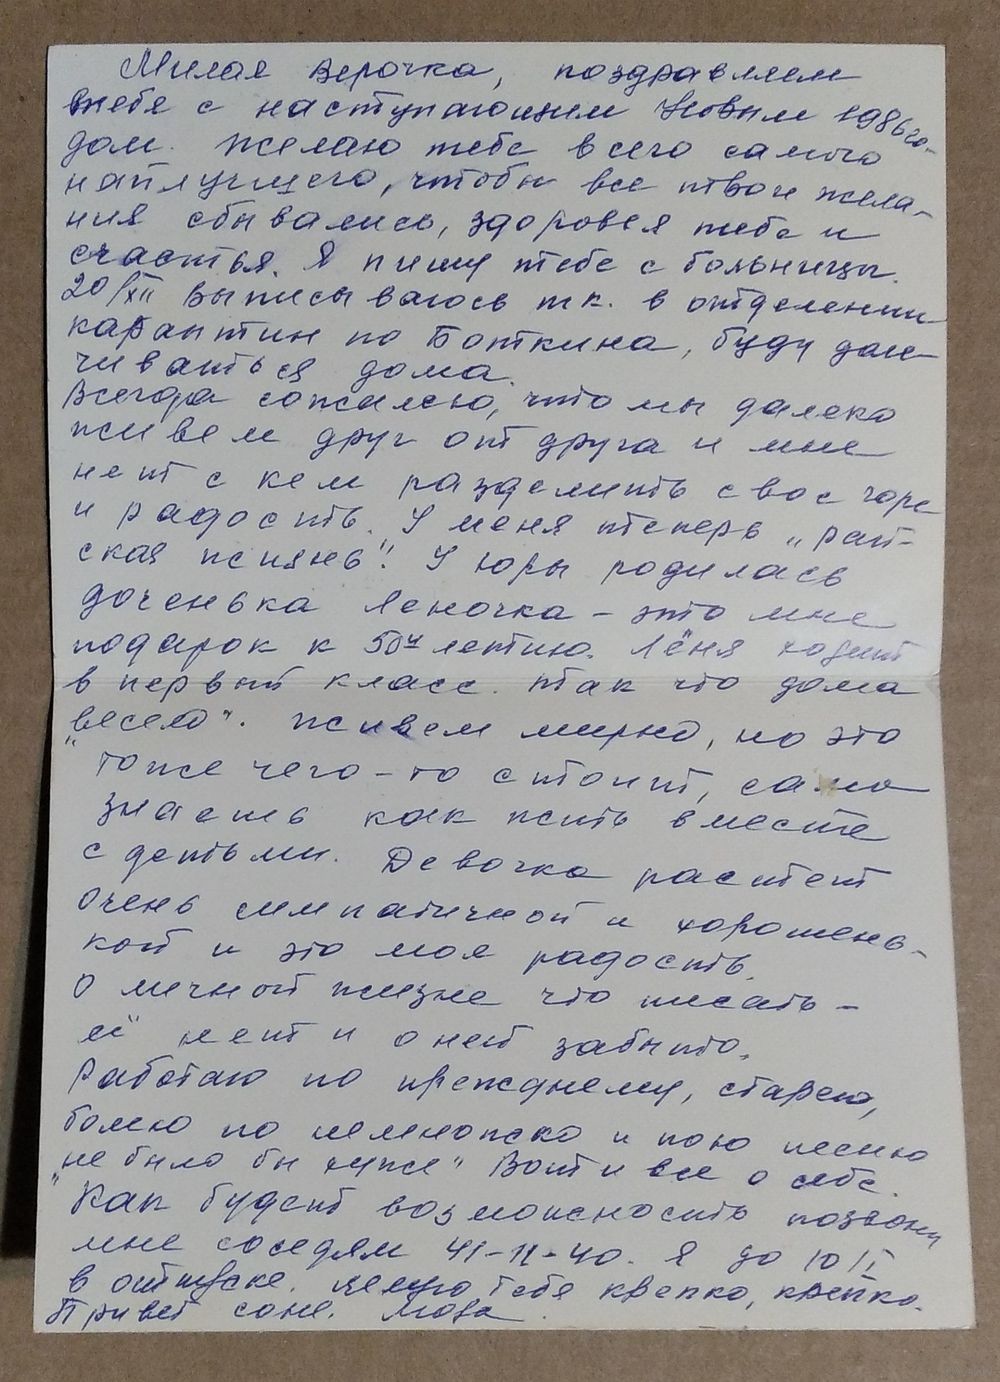 Милая Верочка, поздравляем
тебя с наступающим Новым 1986 го-
дом. Желаю тебе всего самого
наилучшего, чтобы все твои жела-
ния сбывались, здоровья тебе и
счастья. Я пишу тебе с больницы.
20/XII выписываюсь т.к. в отделении
карантин по Боткина, буду дале-
чиваться дома.
Всегда сожалею, что мы далеко
живем друг от друга и мне
нет с кем разделить свое горе
и радость. У меня теперь „рай-
ская жизнь". У Юры родилась
доченька Леночка – это мне
подарок к 50и летию. Лёня ходит
в первый класс. Так что дома
„весело". Живем мирно, но это
тоже чего-то стоит, сама
знаешь как жить вместе
с детьми. Девочка растет
очень симпатичной и хорошень-
кой и это моя радость.
О личной жизне что писать –
её нет и о ней забыто.
Работаю по прежднему, старею,
болею по немножко и пою песню
„не было бы хуже" Вот и все о себе.
Как будет возможность позвони
мне соседям 41-11-40. Я до 10/I
в отпуске. Целую тебя крепко, крепко.
Привет Соне.